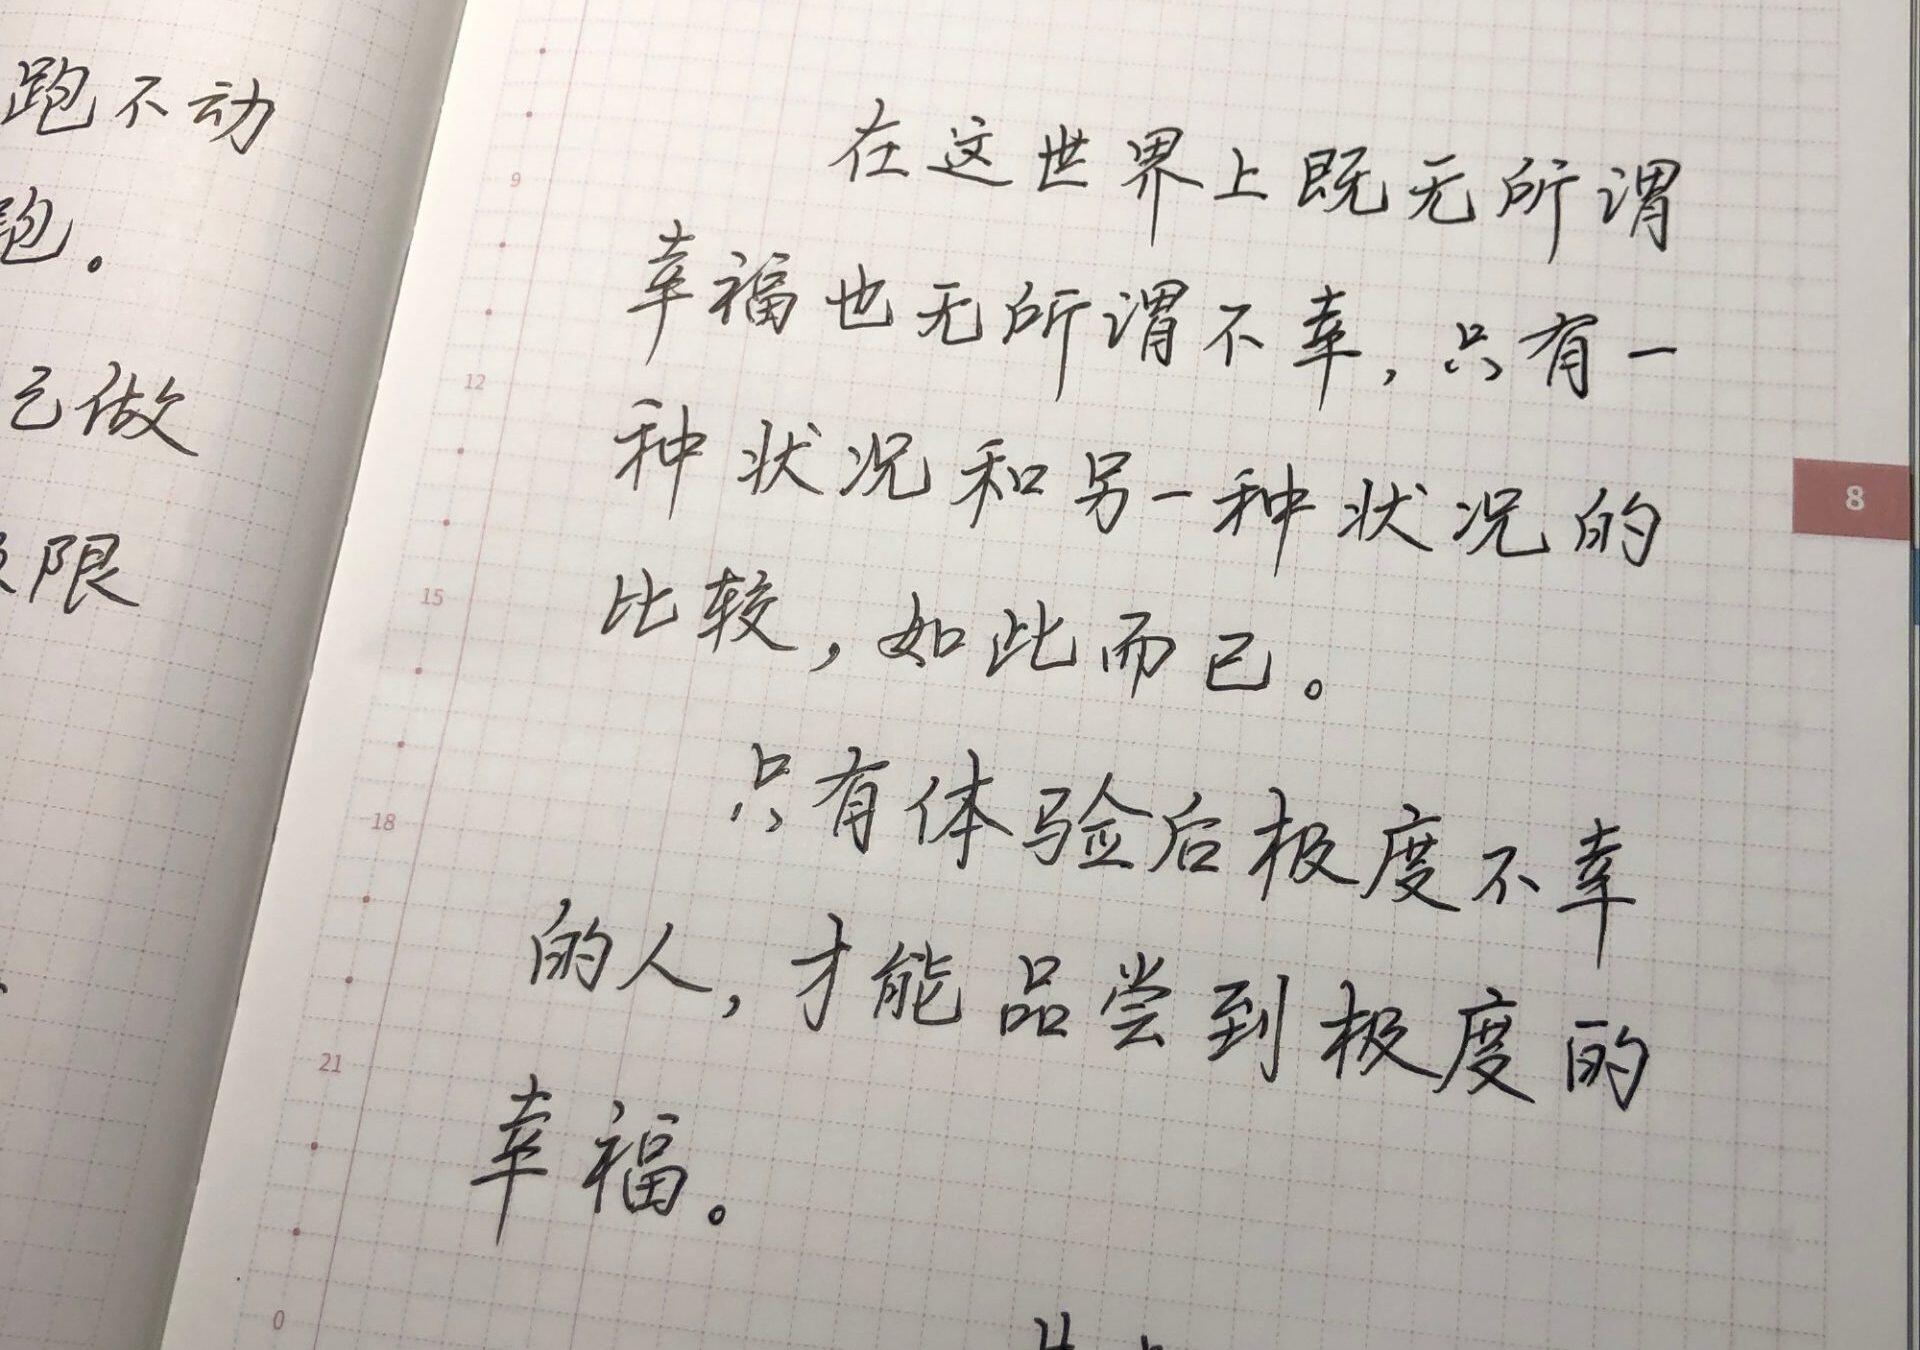 跑不动
跑。
己做
限
在这世界上既无所谓
幸福也无所谓不幸,只有一
种状况和另一种状况的
比较,如此而已。
只有体验后极度不幸
的人,才能品尝到极度的
幸福。
9
12
15
18
21
0
8